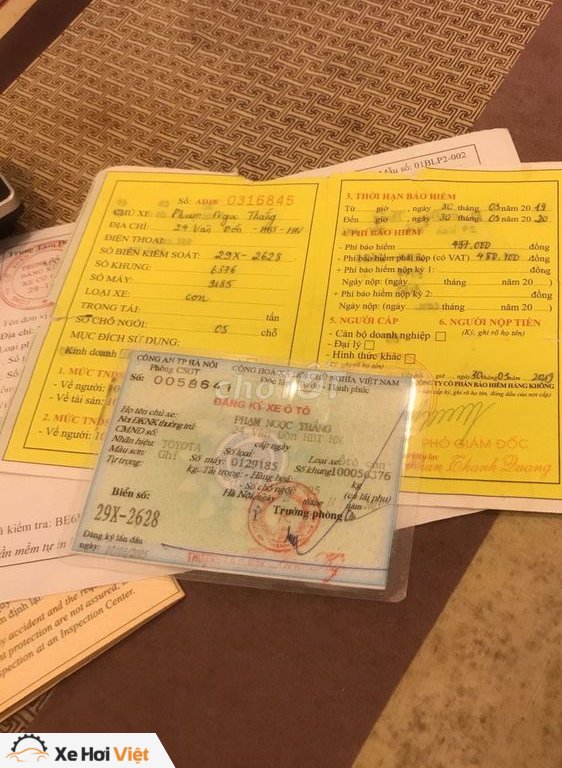 Mẫu số: 01BLP2-002
Số: AD18/ 0316845
CHỦ XE: Phạm Ngọc Thắng
ĐỊA CHỈ: 24 Vân Đồn - HBT - HN
ĐIỆN THOẠI:
SỐ BIỂN KIỂM SOÁT: 29X-2628
SỐ KHUNG: 6376
SỐ MÁY: 9185
LOẠI XE: con
TRỌNG TẢI: tấn
SỐ CHỖ NGỒI: 05 chỗ
MỤC ĐÍCH SỬ DỤNG:
Kinh doanh
1. MỨC TNDS
- Về người:
- Về tài sản:
2. MỨC TNDS
- Về người:
3. THỜI HẠN BẢO HIỂM
Từ giờ , ngày 30 tháng 03 năm 2019
Đến giờ , ngày 30 tháng 03 năm 2020
4. PHÍ BẢO HIỂM
- Phí bảo hiểm 437.000 đồng
- Phí bảo hiểm phải nộp (có VAT) 480.700 đồng
+ Phí bảo hiểm nộp kỳ 1: đồng
Ngày nộp: (ngày tháng năm 20 )
+ Phí bảo hiểm nộp kỳ 2: đồng
Ngày nộp: (ngày tháng năm 20 )
5. NGƯỜI CẤP
- Cán bộ doanh nghiệp
- Đại lý
- Hình thức khác
6. NGƯỜI NỘP TIỀN
(Ký, ghi rõ họ tên)
ngày 30 tháng 03 năm 2019
CÔNG TY CỔ PHẦN BẢO HIỂM HÀNG KHÔNG
PHÓ GIÁM ĐỐC
Phan Thanh Quang
CÔNG AN TP HÀ NỘI
Phòng CSGT
CỘNG HÒA XÃ HỘI CHỦ NGHĨA VIỆT NAM
Độc lập - Tự do - Hạnh phúc
Số: 0058641
ĐĂNG KÝ XE Ô TÔ
Họ tên chủ xe: PHẠM NGỌC THẮNG
Nơi ĐKNK thường trú: 24 Vân Đồn HBT HN
CMND số: cấp ngày
Nhãn hiệu: TOYOTA Số loại
Màu sơn: Ghi Số máy: 0129185 Loại xe: ôtô con
Số khung: 100056376
Tự trọng: kg. Tải trọng: - Hàng hóa: kg
- Số chỗ ngồi: 05 (cả lái phụ)
Hà Nội, ngày tháng năm
Biển số:
29X-2628
Trưởng phòng
Đăng ký lần đầu
ngày:
Chợ TỐT
Xe Hơi Việt